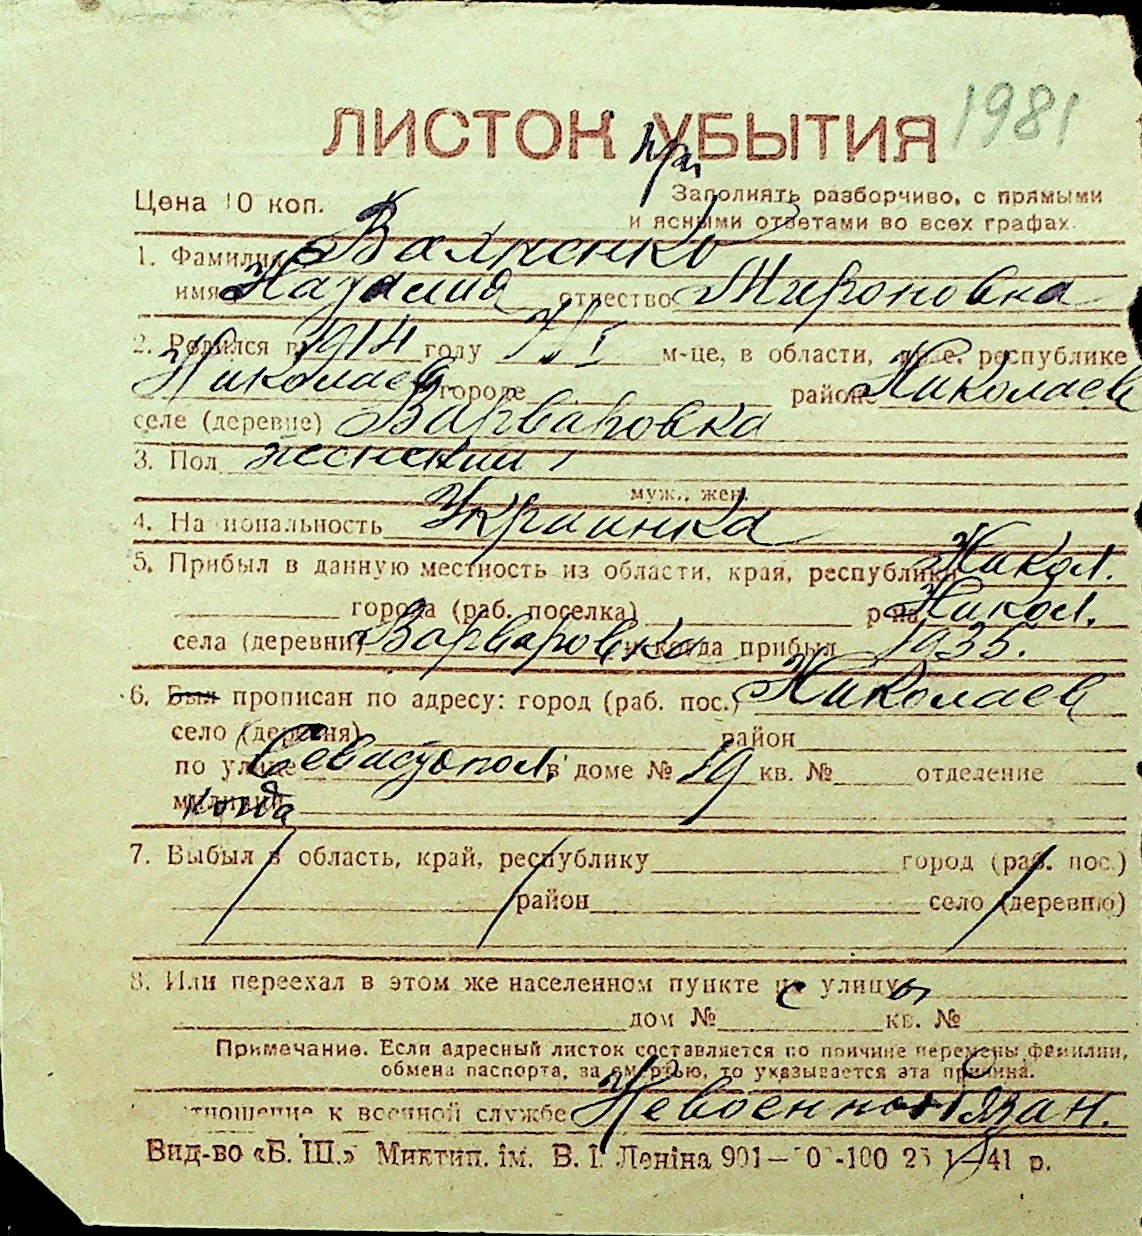 1981
ЛИСТОК УБЫТИЯ
при
Цена 10 коп.
Заполнять разборчиво, с прямыми
и ясными ответами во всех графах.
1. Фамилия
имя Наталия отчество Мироновка
2. Родился в 1914 году VI м-це, в области, кр е. республике
Николаев. городе районе Николаев
селе (деревне) Варваровка
3. Пол женский
муж., жен.
4. На иональность Украинка
5. Прибыл в данную местность из области, края, республики Никол.
города (раб. поселка) р-на Никол.
села (деревни) Варваровка и когда прибыл 1935.
6. Был прописан по адресу: город (раб. пос.) Николаев
село (деревня) район
по улице Севастопол. в доме № 19 кв. № отделение
милиции когда
7. Выбыл в область, край, республику город (раб. пос.)
район село (деревню)
8. Или переехал в этом же населенном пункте с улицы
дом № кв. №
Примечание. Если адресный листок составляется по причине перемены фамилии,
обмена паспорта, за смертью, то указывается эта причина.
тношение к военной службе Невоеннообязан.
Вид-во «Б. Ш.» Миктип. ім. В. І. Леніна 901— 0 -100 25 1—41 р.